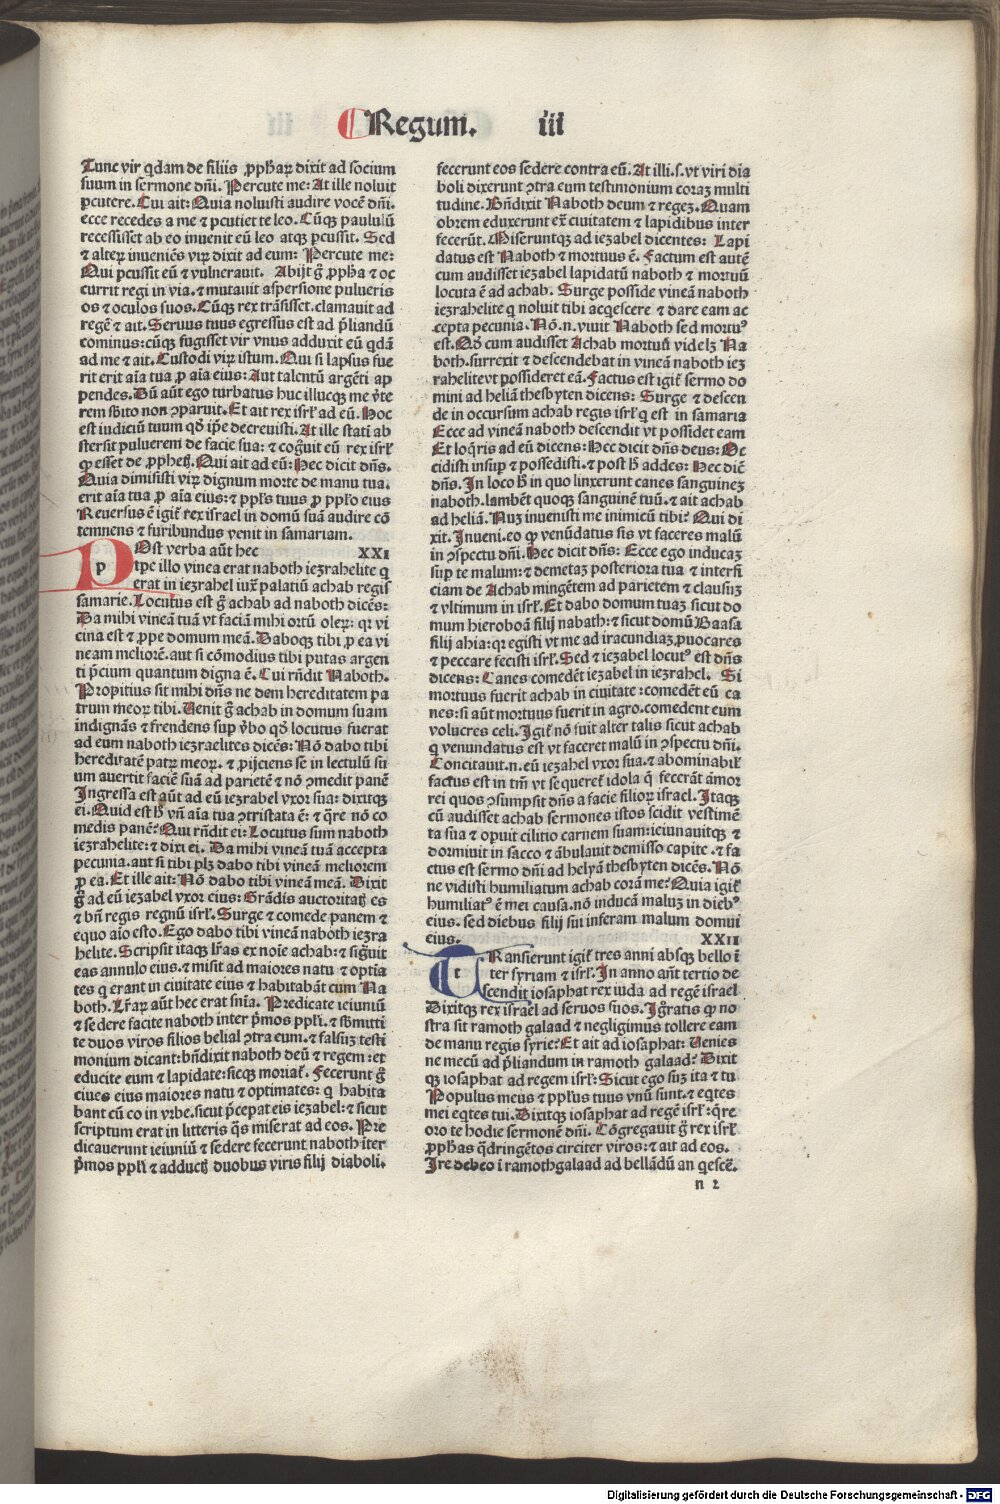 Regum. iii
Tunc vir qdam de filiis ꝓphaꝝ dixit ad socium
suum in sermone dñi. Percute me: At ille noluit
ꝑcutere. Cui ait: Quia noluisti audire vocē dñi.
ecce recedes a me ⁊ ꝑcutiet te leo. Cūqꝫ paululū
recessisset ab eo inuenit eū leo atqꝫ ꝑcussit. Sed
⁊ alteꝝ inueniēs viꝝ dixit ad eum: Percute me:
Qui ꝑcussit eū ⁊ vulnerauit. Abijt g̃ ꝓpha ⁊ oc
currit regi in via. ⁊ mutauit aspersione pulueris
os ⁊ oculos suos. Cūqꝫ rex trāsisset. clamauit ad
regē ⁊ ait. Seruus tuus egressus est ad p̃liandū
cominus: cūqꝫ fugisset vir vnus adduxit eū qdā
ad me ⁊ ait. Custodi viꝝ istum. Qui si lapsus fue
rit erit aīa tua ꝓ aīa eius: Aut talentū argēti ap
pendes. Dū aūt ego turbatus huc illucqꝫ me v̓te
rem sb̓ito non ꝯparuit. Et ait rex isrl̓ ad eū. Hoc
est iudiciū tuum qd̓ ip̄e decreuisti. At ille stati ab
stersit puluerem de facie sua: ⁊ cog̓uit eū rex isrl̓
ꝙ esset de ꝓphetꝭ. Qui ait ad eū: Hec dicit dñs.
Quia dimisisti viꝝ dignum morte de manu tua.
erit aīa tua ꝓ aīa eius: ⁊ ppl̓s tuus ꝓ ppl̓o eius
Reuersus ē igit̃ rex israel in domū suā audire cō
temnens ⁊ furibundus venit in samariam.
POst verba aūt hec XXI
p tp̄e illo vinea erat naboth iezrahelite q
erat in iezrahel iux̃ palatiū achab regis
samarie. Locutus est g̃ achab ad naboth dicēs:
Da mihi vineā tuā vt faciā mihi ortū oleꝝ: qr vi
cina est ⁊ ꝓpe domum meā. Daboqꝫ tibi ꝓ ea vi
neam meliorē. aut si cōmodius tibi putas argen
ti p̃cium quantum digna ē. Cui rñdit Naboth.
Propitius sit mihi dñs ne dem hereditatem pa
trum meoꝝ tibi. Uenit g̃ achab in domum suam
indignās ⁊ frendens suꝑ v̓bo qd̓ locutus fuerat
ad eum naboth iezraelites dicēs: Nō dabo tibi
hereditatē patꝝ meoꝝ. ⁊ ꝓijciens se in lectulū su
um auertit faciē suā ad parietē ⁊ nō ꝯmedit panē
Ingressa est aūt ad eū iezabel vxor sua: dixitqꝫ
ei. Quid est h̓ vñ aīa tua ꝯtristata ē: ⁊ q̄re nō co
medis panē? Qui rñdit ei: Locutus sum naboth
iezrahelite: ⁊ dixi ei. Da mihi vineā tuā accepta
pecunia. aut si tibi plꝫ dabo tibi vineā meliorem
ꝓ ea. Et ille ait: Nō dabo tibi vineā meā. Dixit
g̃ ad eū iezabel vxor eius: Grādis auctoritatꝭ es
⁊ bñ regis regnū isrl̓. Surge ⁊ comede panem ⁊
equo aīo esto. Ego dabo tibi vineā naboth iezra
helite. Scripsit itaqꝫ lr̄as ex noīe achab: ⁊ sig̓uit
eas annulo eius. ⁊ misit ad maiores natu ⁊ optia
tes q erant in ciuitate eius ⁊ habitabāt cum Na
both. Lr̄aꝝ aūt hec erat sn̄ia. Predicate ieiuniū
⁊ sedere facite naboth inter p̓mos ppl̓i. ⁊ sb̓mitti
te duos viros filios belial ꝯtra eum. ⁊ falsuꝫ testi
monium dicant: bñdixit naboth deū ⁊ regem: et
educite eum ⁊ lapidate: sicqꝫ moriat̃. Fecerunt g̃
ciues eius maiores natu ⁊ optimates: q habita
bant cū eo in vrbe. sicut p̃cepat eis iezabel: ⁊ sicut
scriptum erat in litteris q̄s miserat ad eos. Pre
dicauerunt ieiuniū ⁊ sedere fecerunt naboth īter
p̓mos ppl̓i ⁊ adductꝭ duobus viris filij diaboli.
fecerunt eos sedere contra eū. At illi. s. vt viri dia
boli dixerunt ꝯtra eum testimonium coraꝫ multi
tudine. Bñdixit Naboth deum ⁊ regeꝫ. Quam
obrem eduxerunt ex̃ ciuitatem ⁊ lapidibus inter
fecerūt. Miseruntqꝫ ad iezabel dicentes: Lapi
datus est Naboth ⁊ mortuus ē. Factum est autē
cum audisset iezabel lapidatū naboth ⁊ mortuū
locuta ē ad achab. Surge posside vineā naboth
iezrahelite q noluit tibi acqescere ⁊ dare eam ac
cepta pecunia. Nō. n. viuit Naboth sed mortuꝰ
est. Qd̓ cum audisset Achab mortuū videlꝫ Na
both. surrexit ⁊ descendebat in vineā naboth iez
rahelite vt possideret eā. Factus est igit̃ sermo do
mini ad heliā thesbyten dicens: Surge ⁊ descen
de in occursum achab regis isrl̓ q est in samaria
Ecce ad vineā naboth descendit vt possidet eam
Et loq̄ris ad eū dicens: Hec dicit dñs deus: Oc
cidisti insuꝑ ⁊ possedisti. ⁊ post h̓ addes: Hec dic̄
dñs. In loco h̓ in quo linxerunt canes sanguineꝫ
naboth. lambēt quoqꝫ sanguinē tuū. ⁊ ait achab
ad heliā. Nuꝫ inuenisti me inimicū tibi? Qui di
xit. Inueni. eo ꝙ venūdatus sis vt faceres malū
in ꝯspectu dñi. Hec dicit dñs: Ecce ego inducaꝫ
suꝑ te malum: ⁊ demetaꝫ posteriora tua ⁊ interfi
ciam de Achab mingētem ad parietem ⁊ clausuꝫ
⁊ vltimum in isrl̓. Et dabo domum tuaꝫ sicut do
mum hieroboā filij nabath: ⁊ sicut domū Baasa
filij ahia: qr egisti vt me ad iracundiaꝫ ꝓuocares
⁊ peccare fecisti isrl̓. Sed ⁊ iezabel locutꝰ est dñs
dicens: Canes comedēt iezabel in iezrahel. Si
mortuus fuerit achab in ciuitate: comedēt eū ca
nes: si aūt mortuus fuerit in agro. comedent eum
volucres celi. Igit̃ nō fuit alter talis sicut achab
q venundatus est vt faceret malū in ꝯspectu dñi.
Concitauit. n. eū iezabel vxor sua. ⁊ abominabil̓
factus est in tm̄ vt sequeret̃ idola q̄ fecerāt amor
rei quos ꝯsumpsit dñs a facie filioꝝ israel. Itaqꝫ
cū audisset achab sermones istos scidit vestimē
ta sua ⁊ opuit cilitio carnem suam: ieiunauitqꝫ ⁊
dormiuit in sacco ⁊ ābulauit demisso capite. ⁊ fa
ctus est sermo dñi ad helyā thesbyten dicēs. Nō
ne vidisti humiliatum achab corā me? Quia igit̃
humiliatꝰ ē mei causa. nō inducā maluꝫ in diebꝰ
eius. sed diebus filij sui inferam malum domui
eius. XXII
t TRansierunt igit̃ tres anni absqꝫ bello ī
ter syriam ⁊ isrl̓. In anno aūt tertio de
scendit iosaphat rex iuda ad regē israel
Dixitqꝫ rex israel ad seruos suos. Ig̓ratis ꝙ no
stra sit ramoth galaad ⁊ negligimus tollere eam
de manu regis syrie? Et ait ad iosaphat: Uenies
ne mecū ad p̃liandum in ramoth galaad? Dixit
qꝫ iosaphat ad regem isrl̓: Sicut ego suꝫ ita ⁊ tu
Populus meus ⁊ ppl̓us tuus vnū sunt. ⁊ eqtes
mei eqtes tui. Dixitqꝫ iosaphat ad regē isrl̓: q̄re
oro te hodie sermonē dñi. Cōgregauit g̃ rex isrl̓
ꝓphas q̄dringētos circiter viros: ⁊ ait ad eos.
Ire debeo ī ramothgalaad ad bellādū an qescē.
n 2
Digitalisierung gefördert durch die Deutsche Forschungsgemeinschaft - DFG